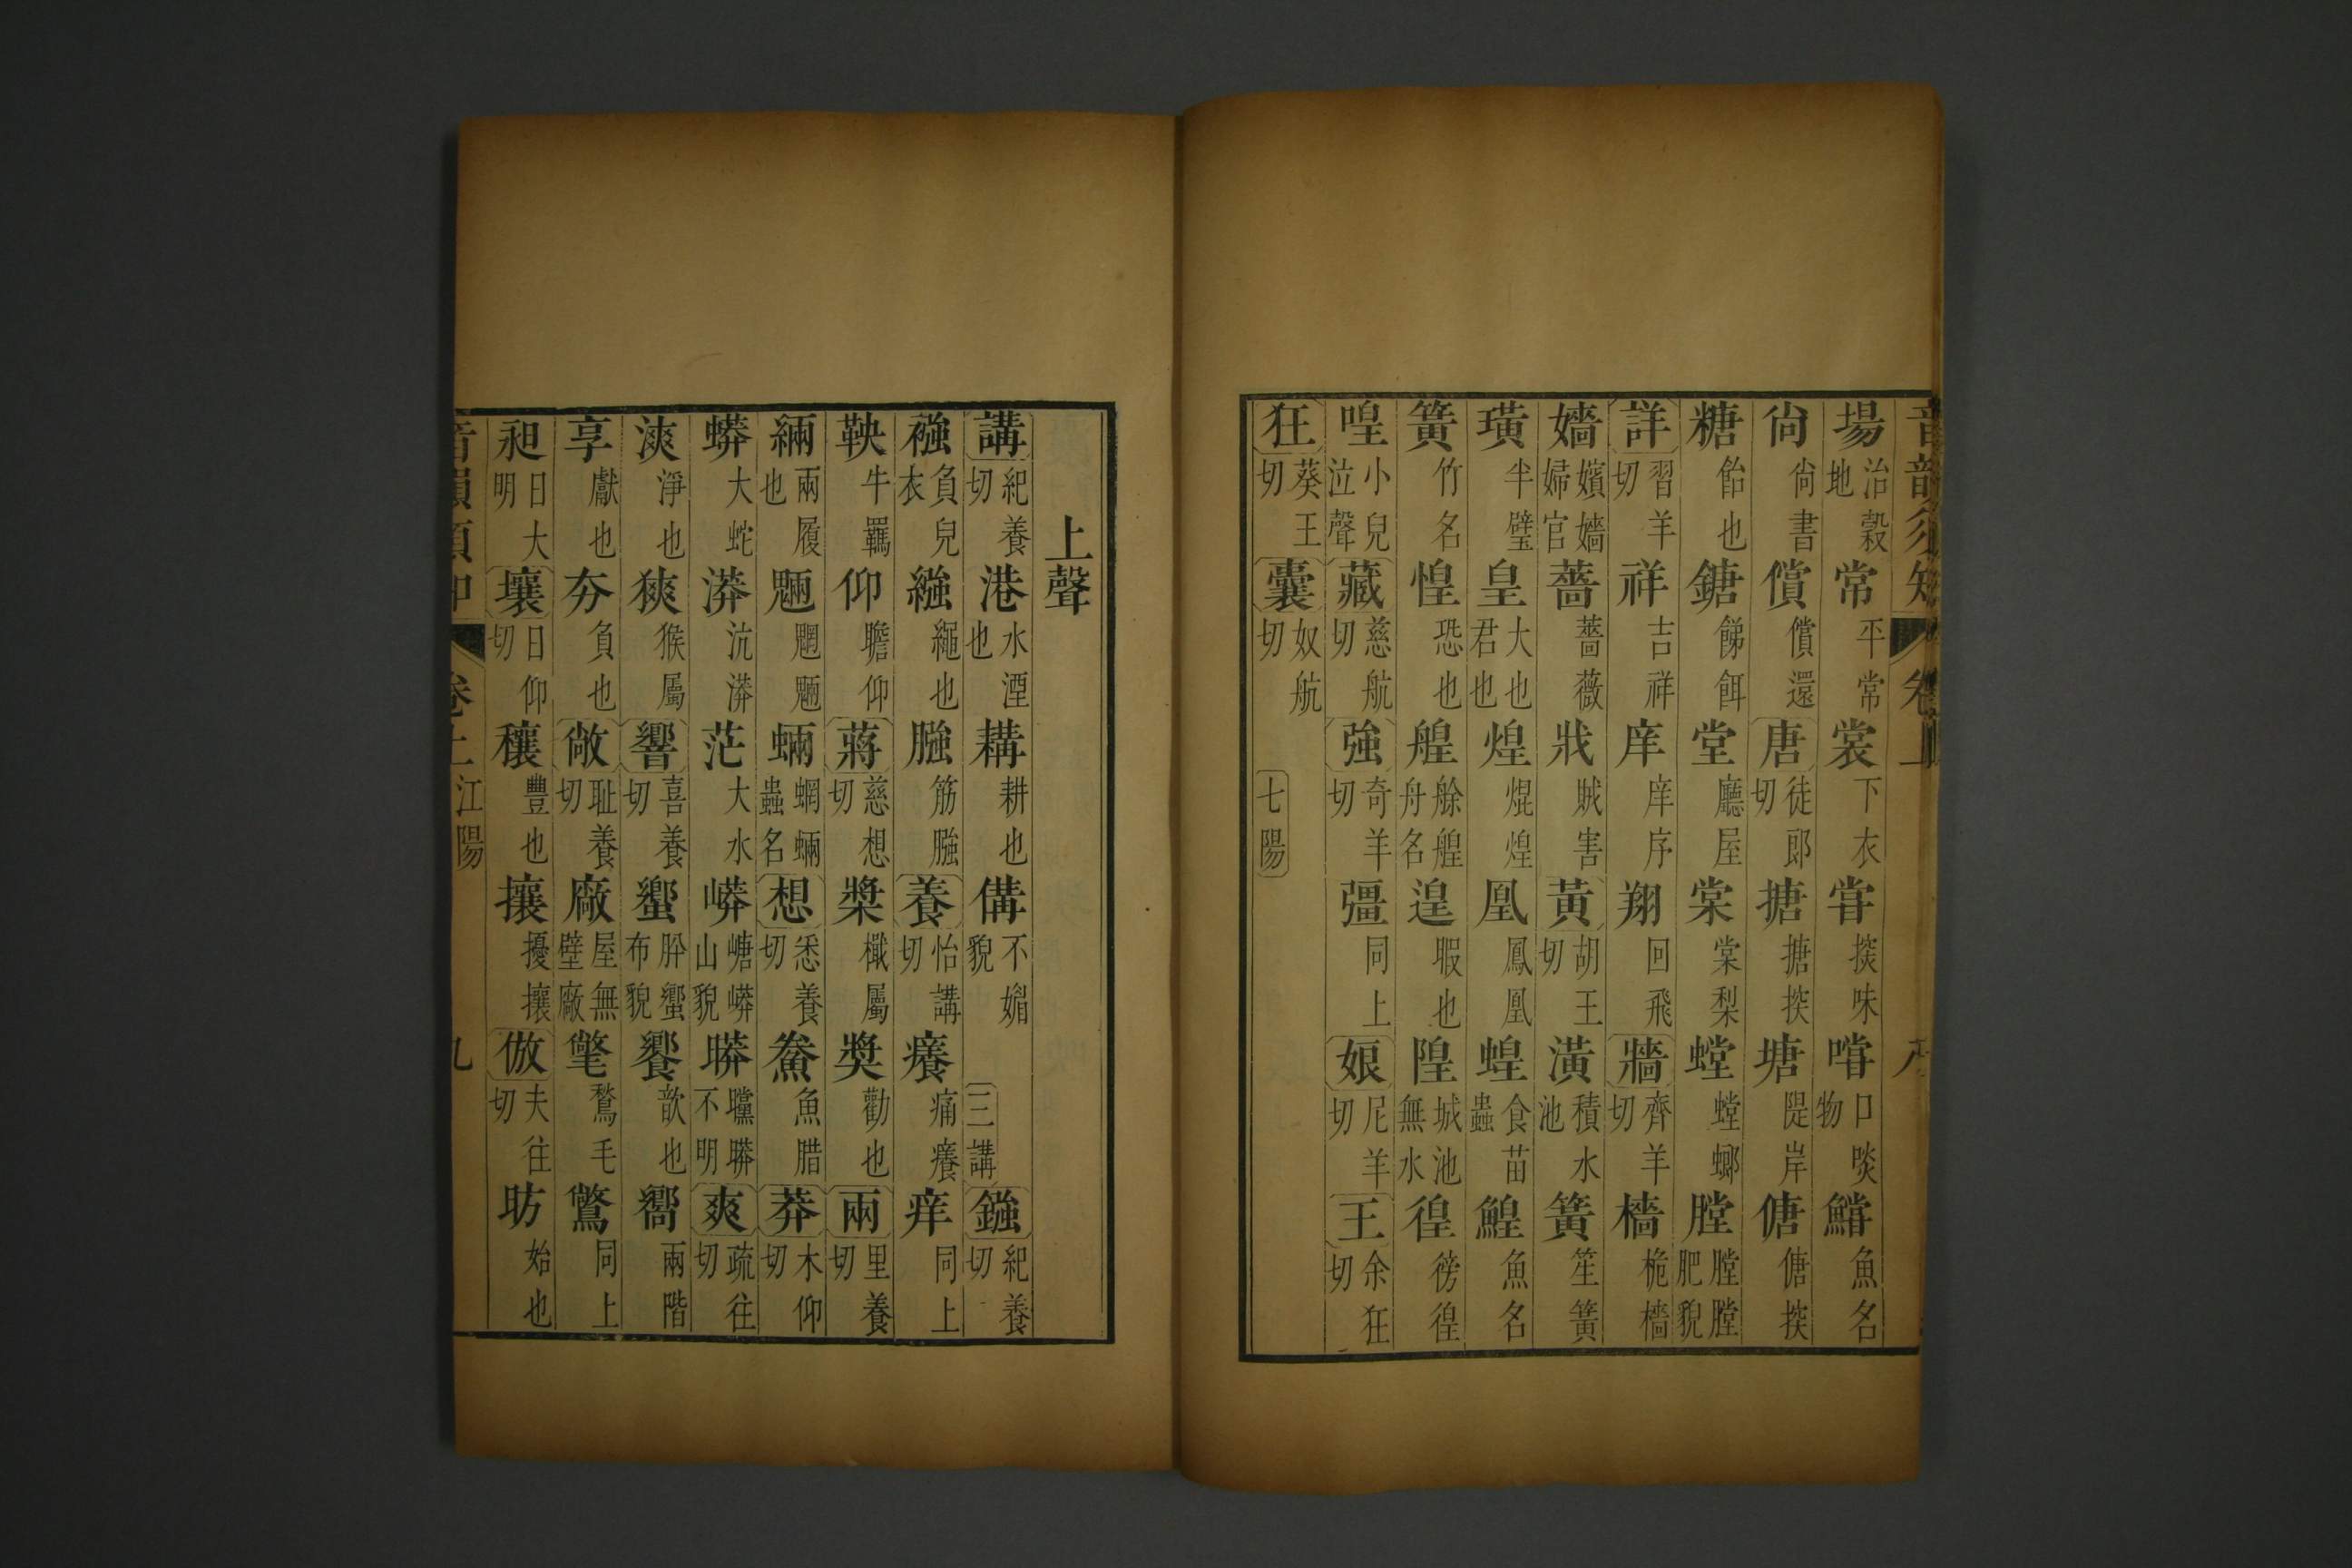 音韻須知 卷上 八
場治穀地常平常裳下衣甞掞味嚐口啖物鱨魚名
尙尙書償償還唐徒郎切搪搪揬塘隄岸傏傏揬
糖飴也鎕餹餌堂廳屋棠棠梨螳螳螂膛膛膛肥貌
詳習羊切祥吉祥庠庠序翔回飛牆齊羊切檣桅檣
嬙嬪嬙婦官薔薔薇戕賊害黃胡王切潢積水池簧笙簧
璜半璧皇大也君也煌焜煌凰鳳凰蝗食苗蟲鰉魚名
篁竹名惶恐也艎艅艎舟名遑暇也隍城池無水徨徬徨
喤小兒泣聲藏慈航切強奇羊切彊同上娘尼羊切王余狂切
狂葵王切囊奴航切 七陽
上聲
講紀養切港水湮也耩耕也傋不媚貌 三講 鏹紀養切
襁負兒衣繈繩也膙筋膙養怡講切癢痛癢痒同上
鞅牛羈仰瞻仰蔣慈想切槳檝屬奬勸也兩里養切
緉兩履也魎魍魎蜽蝄蜽蟲名想悉養切鮝魚腊莽木仰切
蟒大蛇漭沆漭茫大水㟿嵣㟿山貌䁳矘䁳不明爽疏往切
漺淨也㹵猴屬響喜養切蠁肸蠁布貌饗歆也嚮兩階
享獻也夯負也敞耻養切廠屋無壁廠氅鶖毛鷩同上
昶日大明壤日仰切穰豐也攘擾攘倣夫往切昉始也
音韻須知 卷上 江陽 九